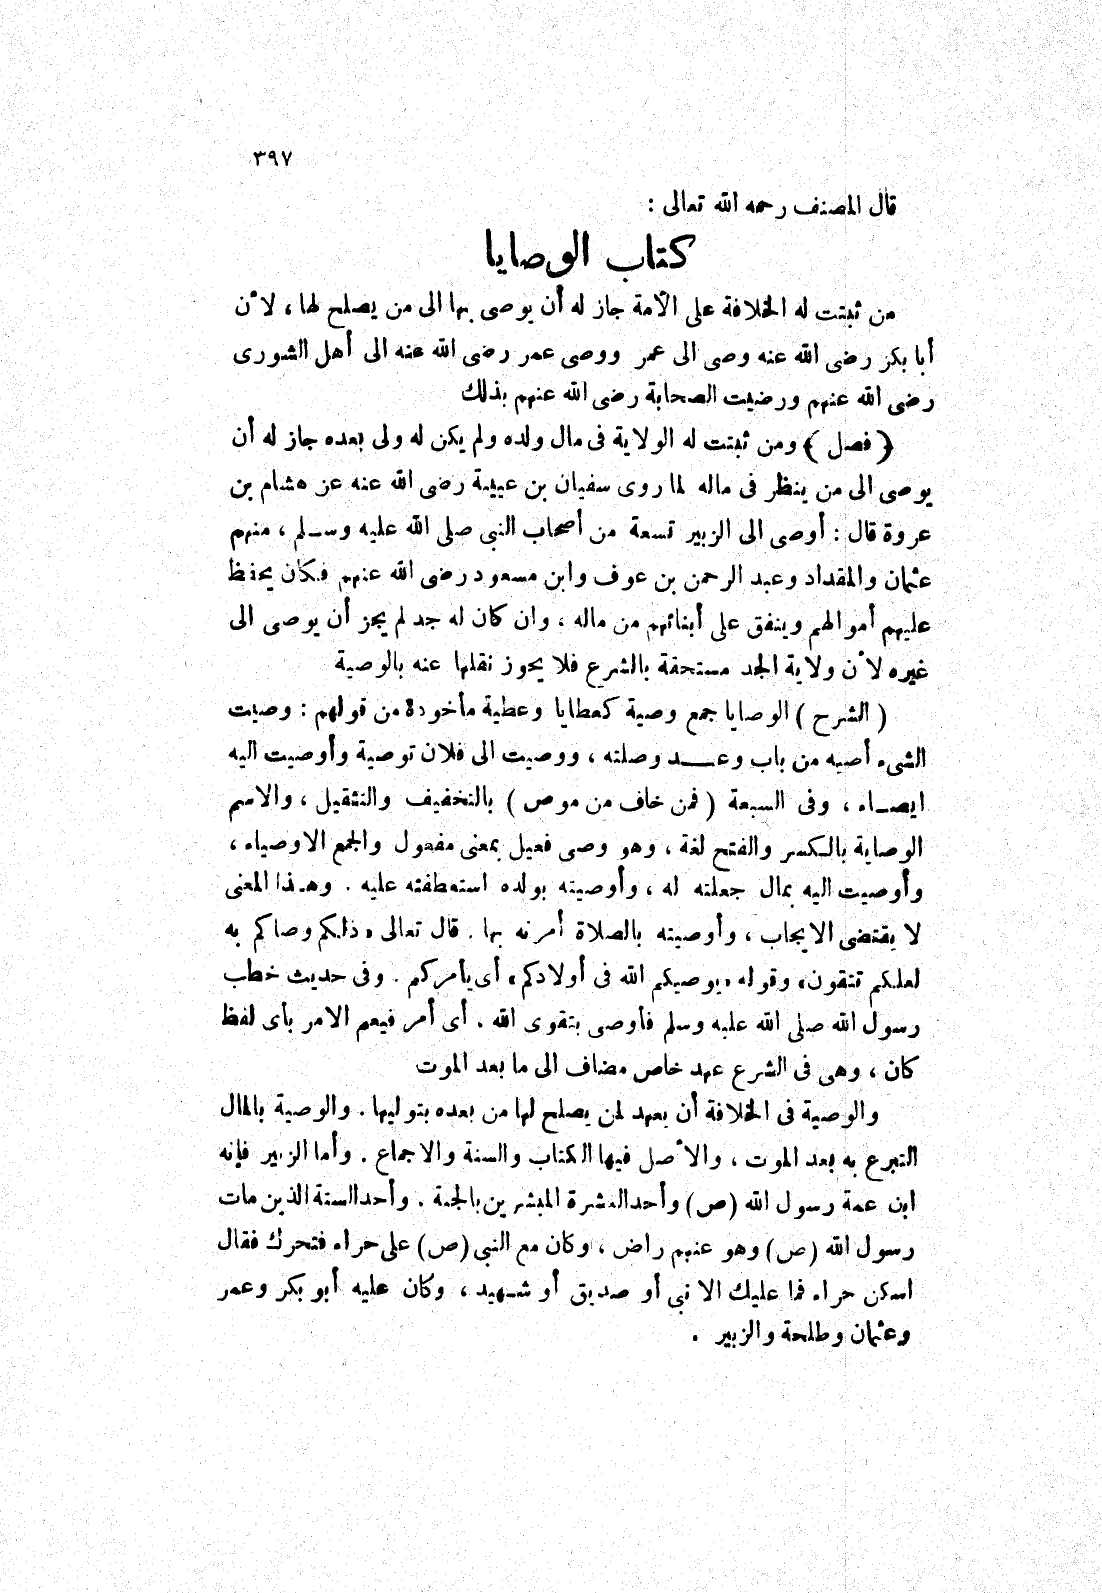 ٣٩٧
قال المصنف رحمه الله تعالى :
كتاب الوصايا
من ثبتت له الخلافة على الأمة جاز له أن يوصى بها الى من يصلح لها ، لأن
أبا بكر رضى الله عنه وصى الى عمر ووصى عمر رضى الله عنه الى أهل الشورى
رضى الله عنهم ورضيت الصحابة رضى الله عنهم بذلك
﴿ فصل ﴾ ومن ثبتت له الولاية فى مال ولده ولم يكن له ولى بعده جاز له أن
يوصى الى من ينظر فى ماله لما روى سفيان بن عيينة رضى الله عنه عن هشام بن
عروة قال : أوصى الى الزبير تسعة من أصحاب النبى صلى الله عليه وسـلم ، منهم
عثمان والمقداد وعبد الرحمن بن عوف وابن مسعود رضى الله عنهم فكان يحفظ
عليهم أموالهم وينفق على أبنائهم من ماله ، وان كان له جد لم يجز أن يوصى الى
غيره لأن ولاية الجد مستحقة بالشرع فلا يجوز نقلها عنه بالوصية
( الشرح ) الوصايا جمع وصية كعطايا وعطية مأخوذة من قولهم : وصيت
الشىء أصيه من باب وعــد وصلته ، ووصيت الى فلان توصية وأوصيت اليه
ايصـاء ، وفى السبعة ( فمن خاف من موص ) بالتخفيف والتثقيل ، والاسم
الوصاية بالـكسر والفتح لغة ، وهو وصى فعيل بمعنى مفعول والجمع الاوصياء ،
وأوصيت اليه بمال جعلته له ، وأوصيته بولده استعطفته عليه . وهـذا المعنى
لا يقتضى الايجاب ، وأوصيته بالصلاة أمرته بها . قال تعالى « ذلـكم وصاكم به
لعلـكم تتقون» وقوله «يوصيكم الله فى أولادكم» أى يأمركم . وفى حديث خطب
رسول الله صلى الله عليه وسلم فأوصى بتقوى الله . أى أمر فيعم الامر بأى لفظ
كان ، وهى فى الشرع عهد خاص مضاف الى ما بعد الموت
والوصية فى الخلافة أن يعهد لمن يصلح لها من بعده بتوليها . والوصية بالمال
التبرع به بعد الموت ، والأصل فيها الكتاب والسنة والاجماع . وأما الزبير فإنه
ابن عمة رسول الله (ص) وأحد العشرة المبشرين بالجنة . وأحد الستة الذين مات
رسول الله (ص) وهو عنهم راض ، وكان مع النبى (ص) على حراء فتحرك فقال
اسكن حراء فما عليك الا نبى أو صديق أو شـهيد ، وكان عليه أبو بكر وعمر
وعثمان وطلحة والزبير .